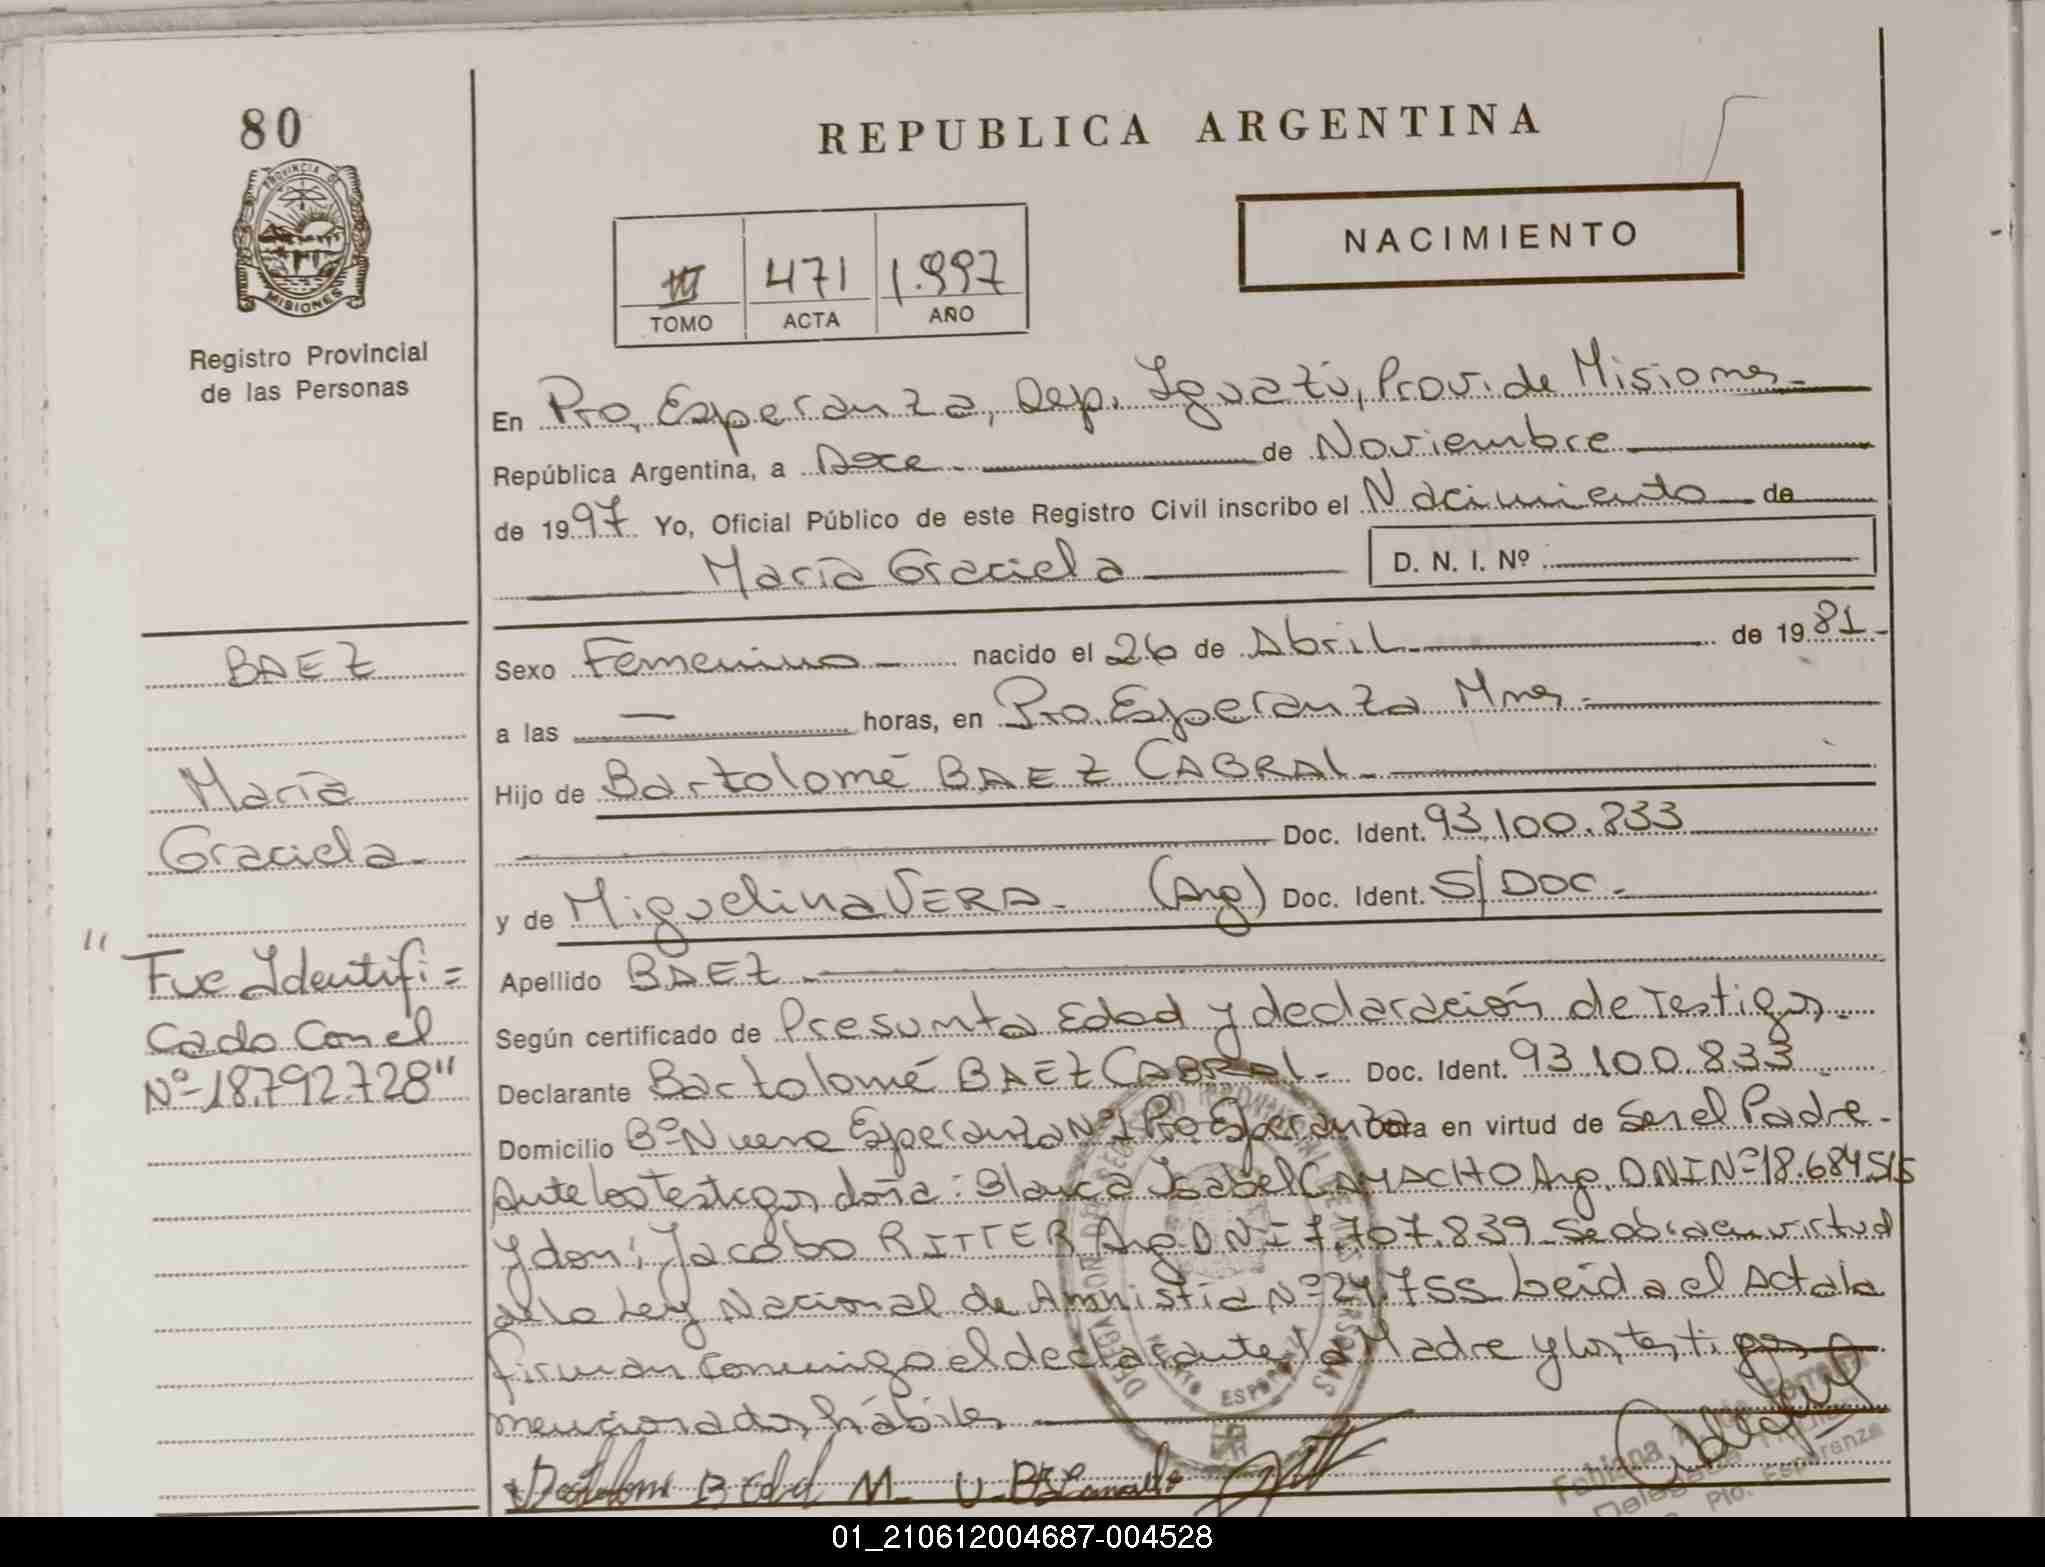 80
REPUBLICA ARGENTINA
PROVINCIA DE
MISIONES
NACIMIENTO
III 471 1.997
TOMO ACTA AÑO
Registro Provincial
de las Personas
En Pto. Esperanza, Dep. Iguazú, Prov. de Misiones
República Argentina, a Doce de Noviembre
de 1997 Yo, Oficial Público de este Registro Civil inscribo el Nacimiento de
María Graciela D. N. I. Nº
BAEZ
María
Graciela
"Fue Identifi=
cado Con el
Nº-18.792.728"
Sexo Femenino nacido el 26 de Abril de 1981
a las — horas, en Pto. Esperanza Mnes
Hijo de Bartolomé BAEZ CABRAL
Doc. Ident. 93.100.833
y de Miguelina VERA. (Arg) Doc. Ident. S/DOC.
Apellido BAEZ
Según certificado de Presunta Edad y declaración de Testigos.
Declarante Bartolomé BAEZ CABRAL Doc. Ident. 93.100.833
Domicilio Bº Nueva Esperanza Nº1 Pto Esperanza Obra en virtud de Ser el Padre
Ante los Testigos, doña: Blanca Isabel CAMACHO Arg. DNI Nº 18.684.515
y don: Jacobo RITTER Arg. DNI 7.707.839 Se obra en virtud
de la Ley Nacional de Amnistia Nº 24.755 Leida el Acta la
firman conmigo el declarante, la Madre y los testigos
mencionados, hábiles
Fabiana
Pto. Esperanza
01_210612004687-004528